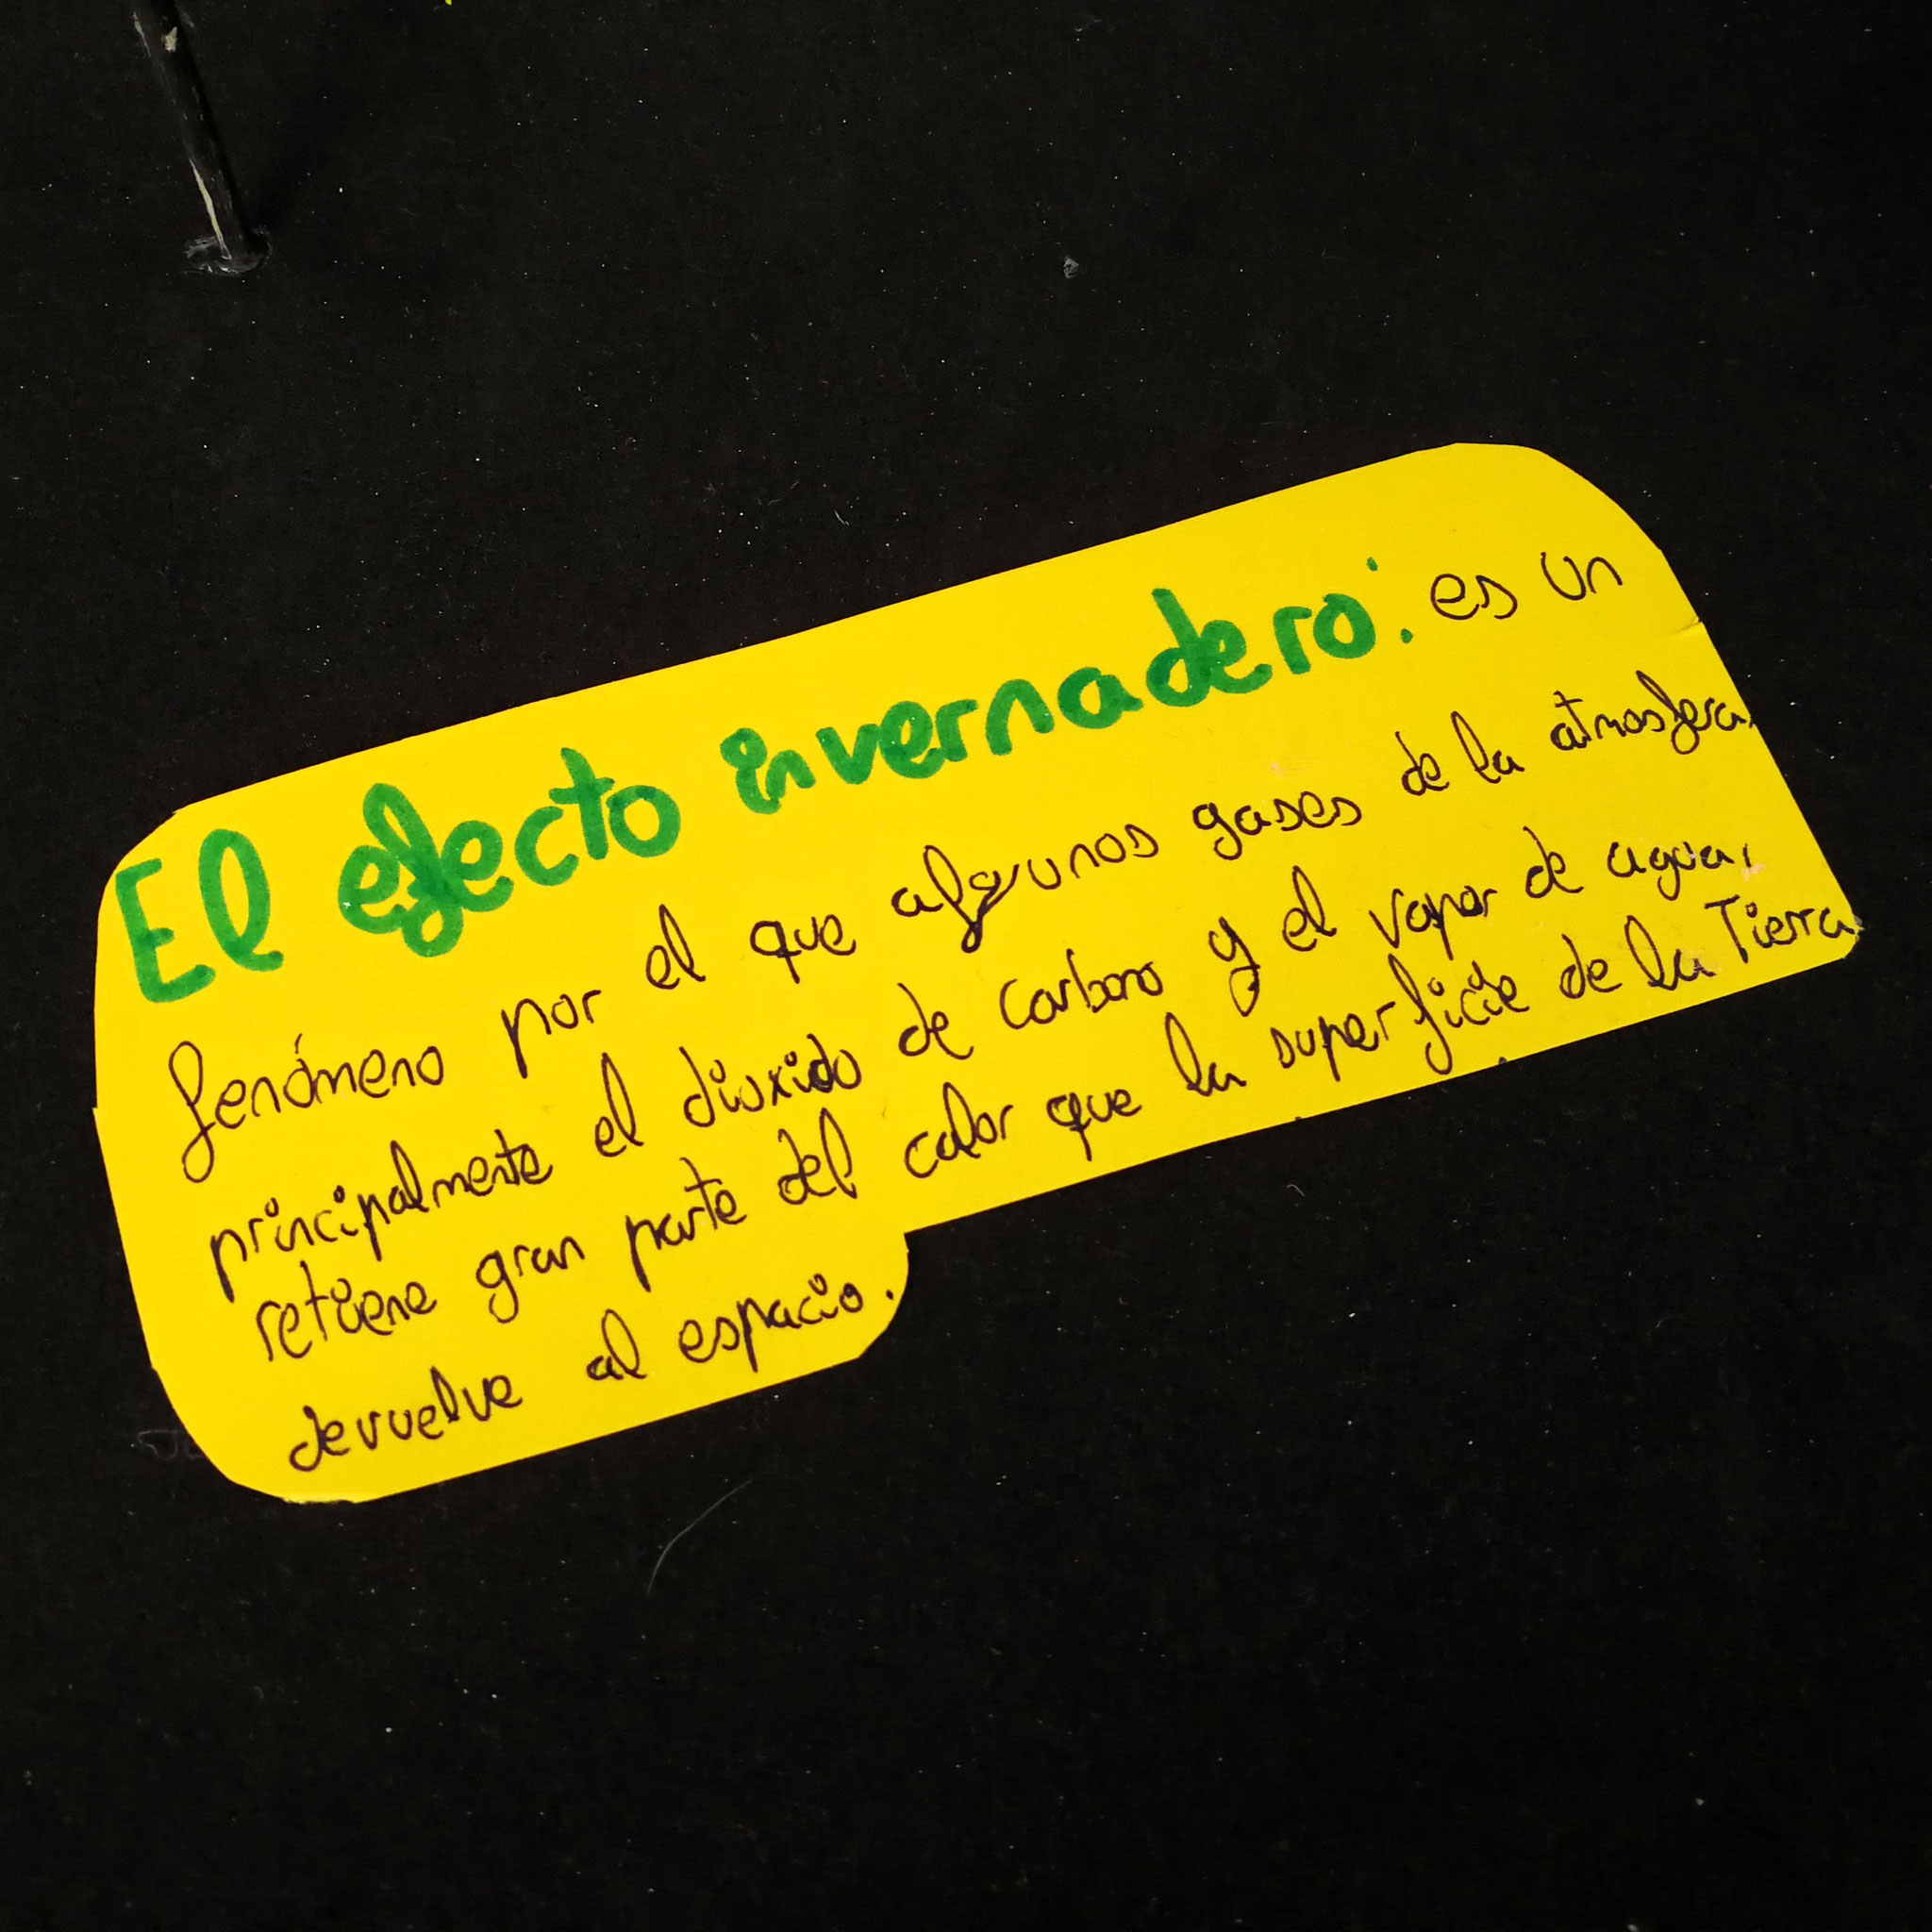 El efecto invernadero: es un
fenómeno por el que algunos gases de la atmosfera,
principalmente el dioxido de Carbono y el vapor de agua,
retiene gran parte del calor que la superficie de la Tierra
devuelve al espacio.